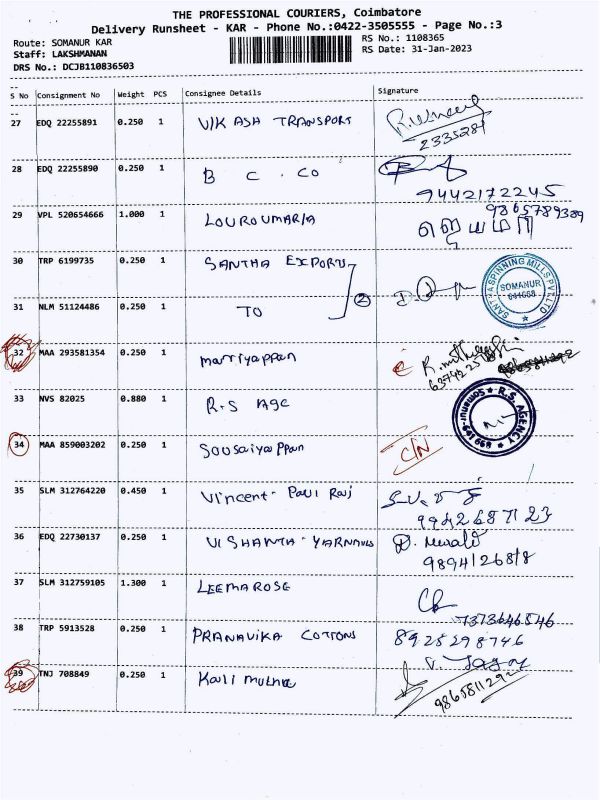 THE PROFESSIONAL COURIERS, Coimbatore
Delivery Runsheet - KAR - Phone No.:0422-3505555 - Page No.:3
Route: SOMANUR KAR
RS No.: 1108365
Staff: LAKSHMANAN
RS Date: 31-Jan-2023
DRS No.: DCJB110836503
S No Consignment No Weight PCS Consignee Details Signature
27 EDQ 22255891 0.250 1 VIKASH TRANSPORT
2335281
28 EDQ 22255890 0.250 1 B C . CO
9442172245
29 VPL 520654666 1.000 1 LOUROUMARIA
9865789389
30 TRP 6199735 0.250 1 SANTHA EXPORTS
SANTHA SPINNING MILLS PVT LTD
SOMANUR
641668
31 NLM 51124486 0.250 1 TO 2
32 MAA 293581354 0.250 1 marriyappan
33 NVS 82025 0.880 1 R.S AGC
R.S. AGENCY SOMANUR-641 668
34 MAA 859003202 0.250 1 Sousaiyappan C/N
35 SLM 312764220 0.450 1 Vincent Paul Raj
9942687123
36 EDQ 22730137 0.250 1 VISHANTH YARNS
9894126818
37 SLM 312759105 1.300 1 LEEMAROSE
7373646546
38 TRP 5913528 0.250 1 PRANAVIKA COTTONS 8925298746
39 TNJ 708849 0.250 1 Kali muthu
9865811292